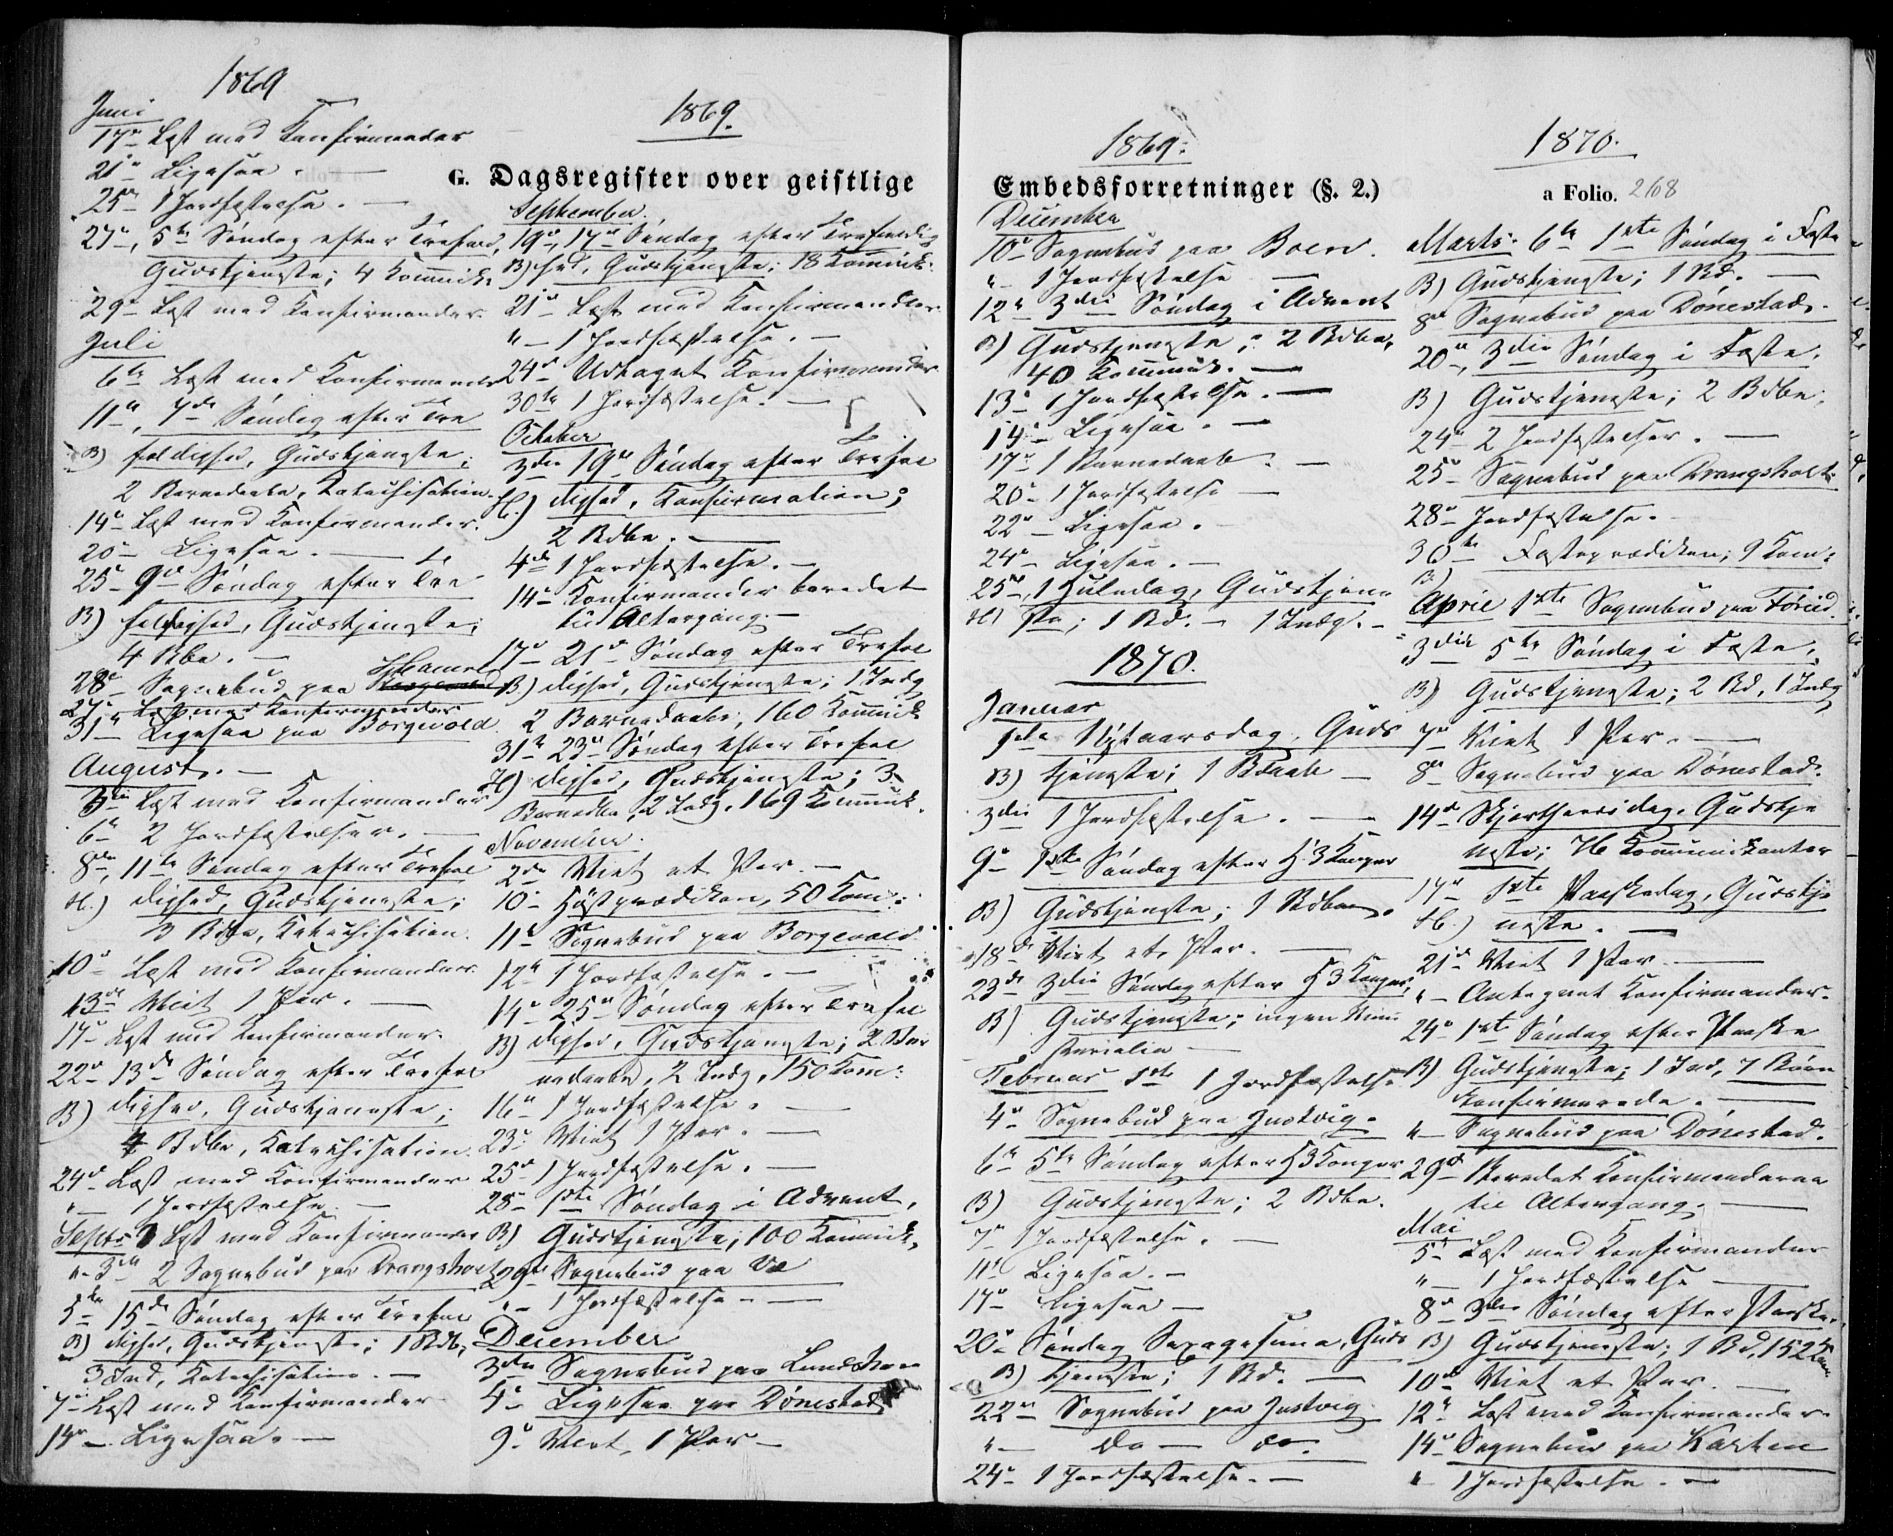 1869
Juni
17de Læst med Konfirmander
21de Ligesaa. —
25de 1 Jordfæstelse. —
27de, 5te Søndag efter Trefold,
Gudstjeneste; 4 Kommunik.
29de Læst med Konfirmander.
Juli
6te Læst med Konfirmander
11te, 7de Søndag efter Tre
B) foldighed, Gudstjeneste;
2 Barnedaabe, Katechisation.
14de Læst med Konfirmander.
20de Ligesaa. —
25de 9de Søndag efter Tre
B) foldighed, Gudstjeneste;
4 Bdbe. —
28de Sognebud paa Hamre
27de Læst med Konfirmander
31te Ligesaa paa Borgevold
August. —
3die Læst med Konfirmander
6te 2 Jordfæstelser. —
8de, 11te Søndag efter Trefol
H.) dighed, Gudstjeneste;
3 Bdbe, Katechisation.
10de Læst med Konfirmander.
13de Viet 1 Par. —
17de Læst med Konfirmander.
22de 13de Søndag efter Trefol
B) dighed, Gudstjeneste;
4 Bdbe, Katechisation.
24de Læst med Konfirmander
" — 1 Jordfæstelse. —
Septbr Læst med Konfirmander
" 3die 2 Sognebud paa Drangsholt
5te 15de Søndag efter Trefol
B) dighed, Gudstjeneste; 1 Bdb,
3 Ind, Katechisation. —
7de Læst med Konfirmander
14de Ligesaa. —
1869.
G. Dagsregister over geistlige
September.
19de, 17de Søndag efter Trefoldig
B) hed, Gudstjeneste; 18 Kommunik.
21de Læst med Konfirmander
" — 1 Jordfæstelse. —
24de Udtaget Konfirmander
30te 1 Jordfæstelse. —
October
3die 19de Søndag efter Trefol
H.) dighed, Konfirmation;
2 Bdbe. —
4de 1 Jordfæstelse. —
14de Konfirmander beredet
til Altergang. —
17de 21de Søndag efter Trefol
B) dighed, Gudstjeneste; 1 Indg
2 Barnedaabe, 160 Kommunik
31te 23de Søndag efter Trefol
H) dighed, Gudstjeneste; 3
Barnedbe, 2 Indg. 169 Kommunik.
November.
2den Viet et Par. —
10de Høstprædiken, 50 Kom:
11te Sognebud paa Borgevold
12te 1 Jordfæstelse. —
14de 25de Søndag efter Trefol
B) dighed, Gudstjeneste; 2 Bar
nedaabe, 2 Indg, 150 Kom:
16de 1 Jordfæstelse. —
23de Viet 1 Par. —
25de 1 Jordfæstelse. —
28de 1ste Søndag i Advent,
B) Gudstjeneste, 100 Kommunik,
29de Sognebud paa Ve
" — 1 Jordfæstelse —
December
3die Sognebud paa
4de Ligesaa paa Dönestad
9de Viet 1 Par —
1869:
Embedsforretninger (§. 2.)
December
10de Sognebud paa Boen.
" 1 Jordfæstelse —
12te 3die Søndag i Advent
B) Gudstjeneste; 2 Bdbe,
40 Kommunik. —
13de 1 Jordfæstelse. —
14de Ligesaa. —
17de 1 Barnedaab. —
20de 1 Jordfæstelse —
22de Ligesaa. —
24de Ligesaa. —
25de, 1 Juledag, Gudstjene
H) ste; 1 Bd. — 1 Indg. —
1870.
Januar
1ste Nytaarsdag, Guds
B) tjeneste; 1 Bdaab —
3die 1 Jordfæstelse. —
9de 1ste Søndag efter H 3 Konger
B) Gudstjeneste; 1 Bdb.
18de Viet et Par. —
23de 3die Søndag efter H 3 Konger,
B) Gudstjeneste; ingen Mini
sterialia —
Februar 1ste 1 Jordfæstelse
4de Sognebud paa Justvig.
6te 5te Søndag efter H 3 Konger
B) Gudstjeneste; 2 Bdbe.
7de 1 Jordfæstelse. —
11te Ligesaa. —
17de Ligesaa —
20de Søndag Sexagesima, Guds
B) tjeneste; 1 Bd. —
22de Sognebud paa Justvig
" — do — do.
24de 1 Jordfæstelse. —
1870.
a Folio. 268
Marts. 6te 1ste Søndag i Faste
B) Gudstjeneste; 1 Bd. —
8de Sognebud paa Dönestad.
20de, 3die Søndag i Faste,
B) Gudstjeneste; 2 Bdbe;
24de 2 Jordfæstelser. —
25de Sognebud paa Drangsholt
28de Jordfæstelse. —
30te Fasteprædiken; 9 Kom:
B)
April 1ste Sognebud paa
3die 5te Søndag i Faste,
B) Gudstjeneste; 2 Bd, 1 Indg
7de Viet 1 Par. —
8de Sognebud paa Dönestad.
14de Skjærthorsdag, Gudstje
neste; 76 Kommunikanter
17de 1ste Paaskedag, Gudstje
H.) neste. —
21de Viet 1 Par. —
" — Antegnet Konfirmander.
24de 1ste Søndag efter Paaske
B) Gudstjeneste; 1 Ind, 7 Börn
Konfirmerede. —
" — Sognebud paa Dönestad.
29de Beredet Konfirmanderne
til Altergang. —
Mai
5te Læst med Konfirmander
" — 1 Jordfæstelse —
8de 3die Søndag efter Paaske,
B) Gudstjeneste, 1 Bd, 152 Kom
10de Viet et Par. —
12te Læst med Konfirmander.
14de Sognebud paa Karsten
" — 1 Jordfæstelse. —